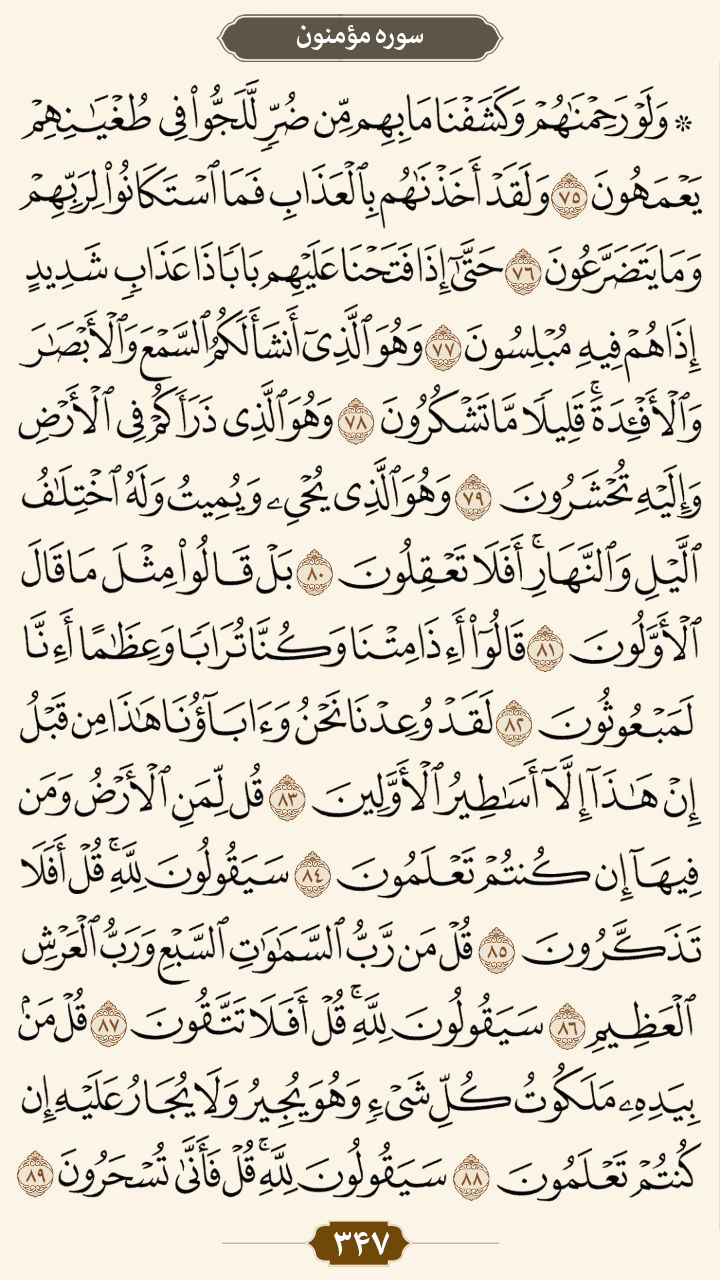 سوره مؤمنون
* وَلَوْ رَحِمْنَٰهُمْ وَكَشَفْنَا مَا بِهِم مِّن ضُرٍّ لَّلَجُّوا۟ فِى طُغْيَٰنِهِمْ
يَعْمَهُونَ ٧٥ وَلَقَدْ أَخَذْنَٰهُم بِٱلْعَذَابِ فَمَا ٱسْتَكَانُوا۟ لِرَبِّهِمْ
وَمَا يَتَضَرَّعُونَ ٧٦ حَتَّىٰٓ إِذَا فَتَحْنَا عَلَيْهِم بَابًا ذَا عَذَابٍ شَدِيدٍ
إِذَا هُمْ فِيهِ مُبْلِسُونَ ٧٧ وَهُوَ ٱلَّذِىٓ أَنشَأَ لَكُمُ ٱلسَّمْعَ وَٱلْأَبْصَٰرَ
وَٱلْأَفْـِٔدَةَ ۚ قَلِيلًا مَّا تَشْكُرُونَ ٧٨ وَهُوَ ٱلَّذِى ذَرَأَكُمْ فِى ٱلْأَرْضِ
وَإِلَيْهِ تُحْشَرُونَ ٧٩ وَهُوَ ٱلَّذِى يُحْىِۦ وَيُمِيتُ وَلَهُ ٱخْتِلَٰفُ
ٱلَّيْلِ وَٱلنَّهَارِ ۚ أَفَلَا تَعْقِلُونَ ٨٠ بَلْ قَالُوا۟ مِثْلَ مَا قَالَ
ٱلْأَوَّلُونَ ٨١ قَالُوٓا۟ أَءِذَا مِتْنَا وَكُنَّا تُرَابًا وَعِظَٰمًا أَءِنَّا
لَمَبْعُوثُونَ ٨٢ لَقَدْ وُعِدْنَا نَحْنُ وَءَابَآؤُنَا هَٰذَا مِن قَبْلُ
إِنْ هَٰذَآ إِلَّآ أَسَٰطِيرُ ٱلْأَوَّلِينَ ٨٣ قُل لِّمَنِ ٱلْأَرْضُ وَمَن
فِيهَآ إِن كُنتُمْ تَعْلَمُونَ ٨٤ سَيَقُولُونَ لِلَّهِ ۚ قُلْ أَفَلَا
تَذَكَّرُونَ ٨٥ قُلْ مَن رَّبُّ ٱلسَّمَٰوَٰتِ ٱلسَّبْعِ وَرَبُّ ٱلْعَرْشِ
ٱلْعَظِيمِ ٨٦ سَيَقُولُونَ لِلَّهِ ۚ قُلْ أَفَلَا تَتَّقُونَ ٨٧ قُلْ مَنۢ
بِيَدِهِۦ مَلَكُوتُ كُلِّ شَىْءٍ وَهُوَ يُجِيرُ وَلَا يُجَارُ عَلَيْهِ إِن
كُنتُمْ تَعْلَمُونَ ٨٨ سَيَقُولُونَ لِلَّهِ ۚ قُلْ فَأَنَّىٰ تُسْحَرُونَ ٨٩
۳۴۷